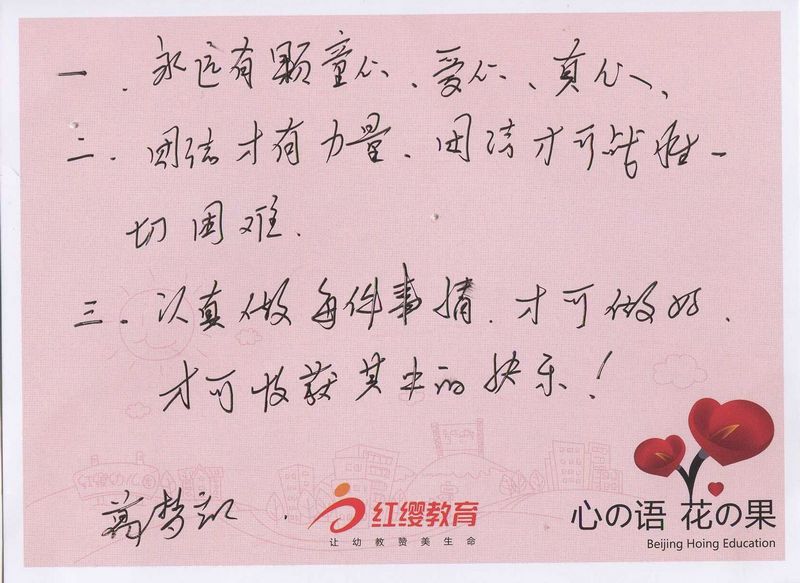 一、永远有颗童心、爱心、真心、
二．团结才有力量、团结才可战胜一
切困难.
三．认真做每件事情.才可做好.
才可收获其中的快乐！
红缨教育
让幼教赞美生命
心の语 花の果
Beijing Hoing Education